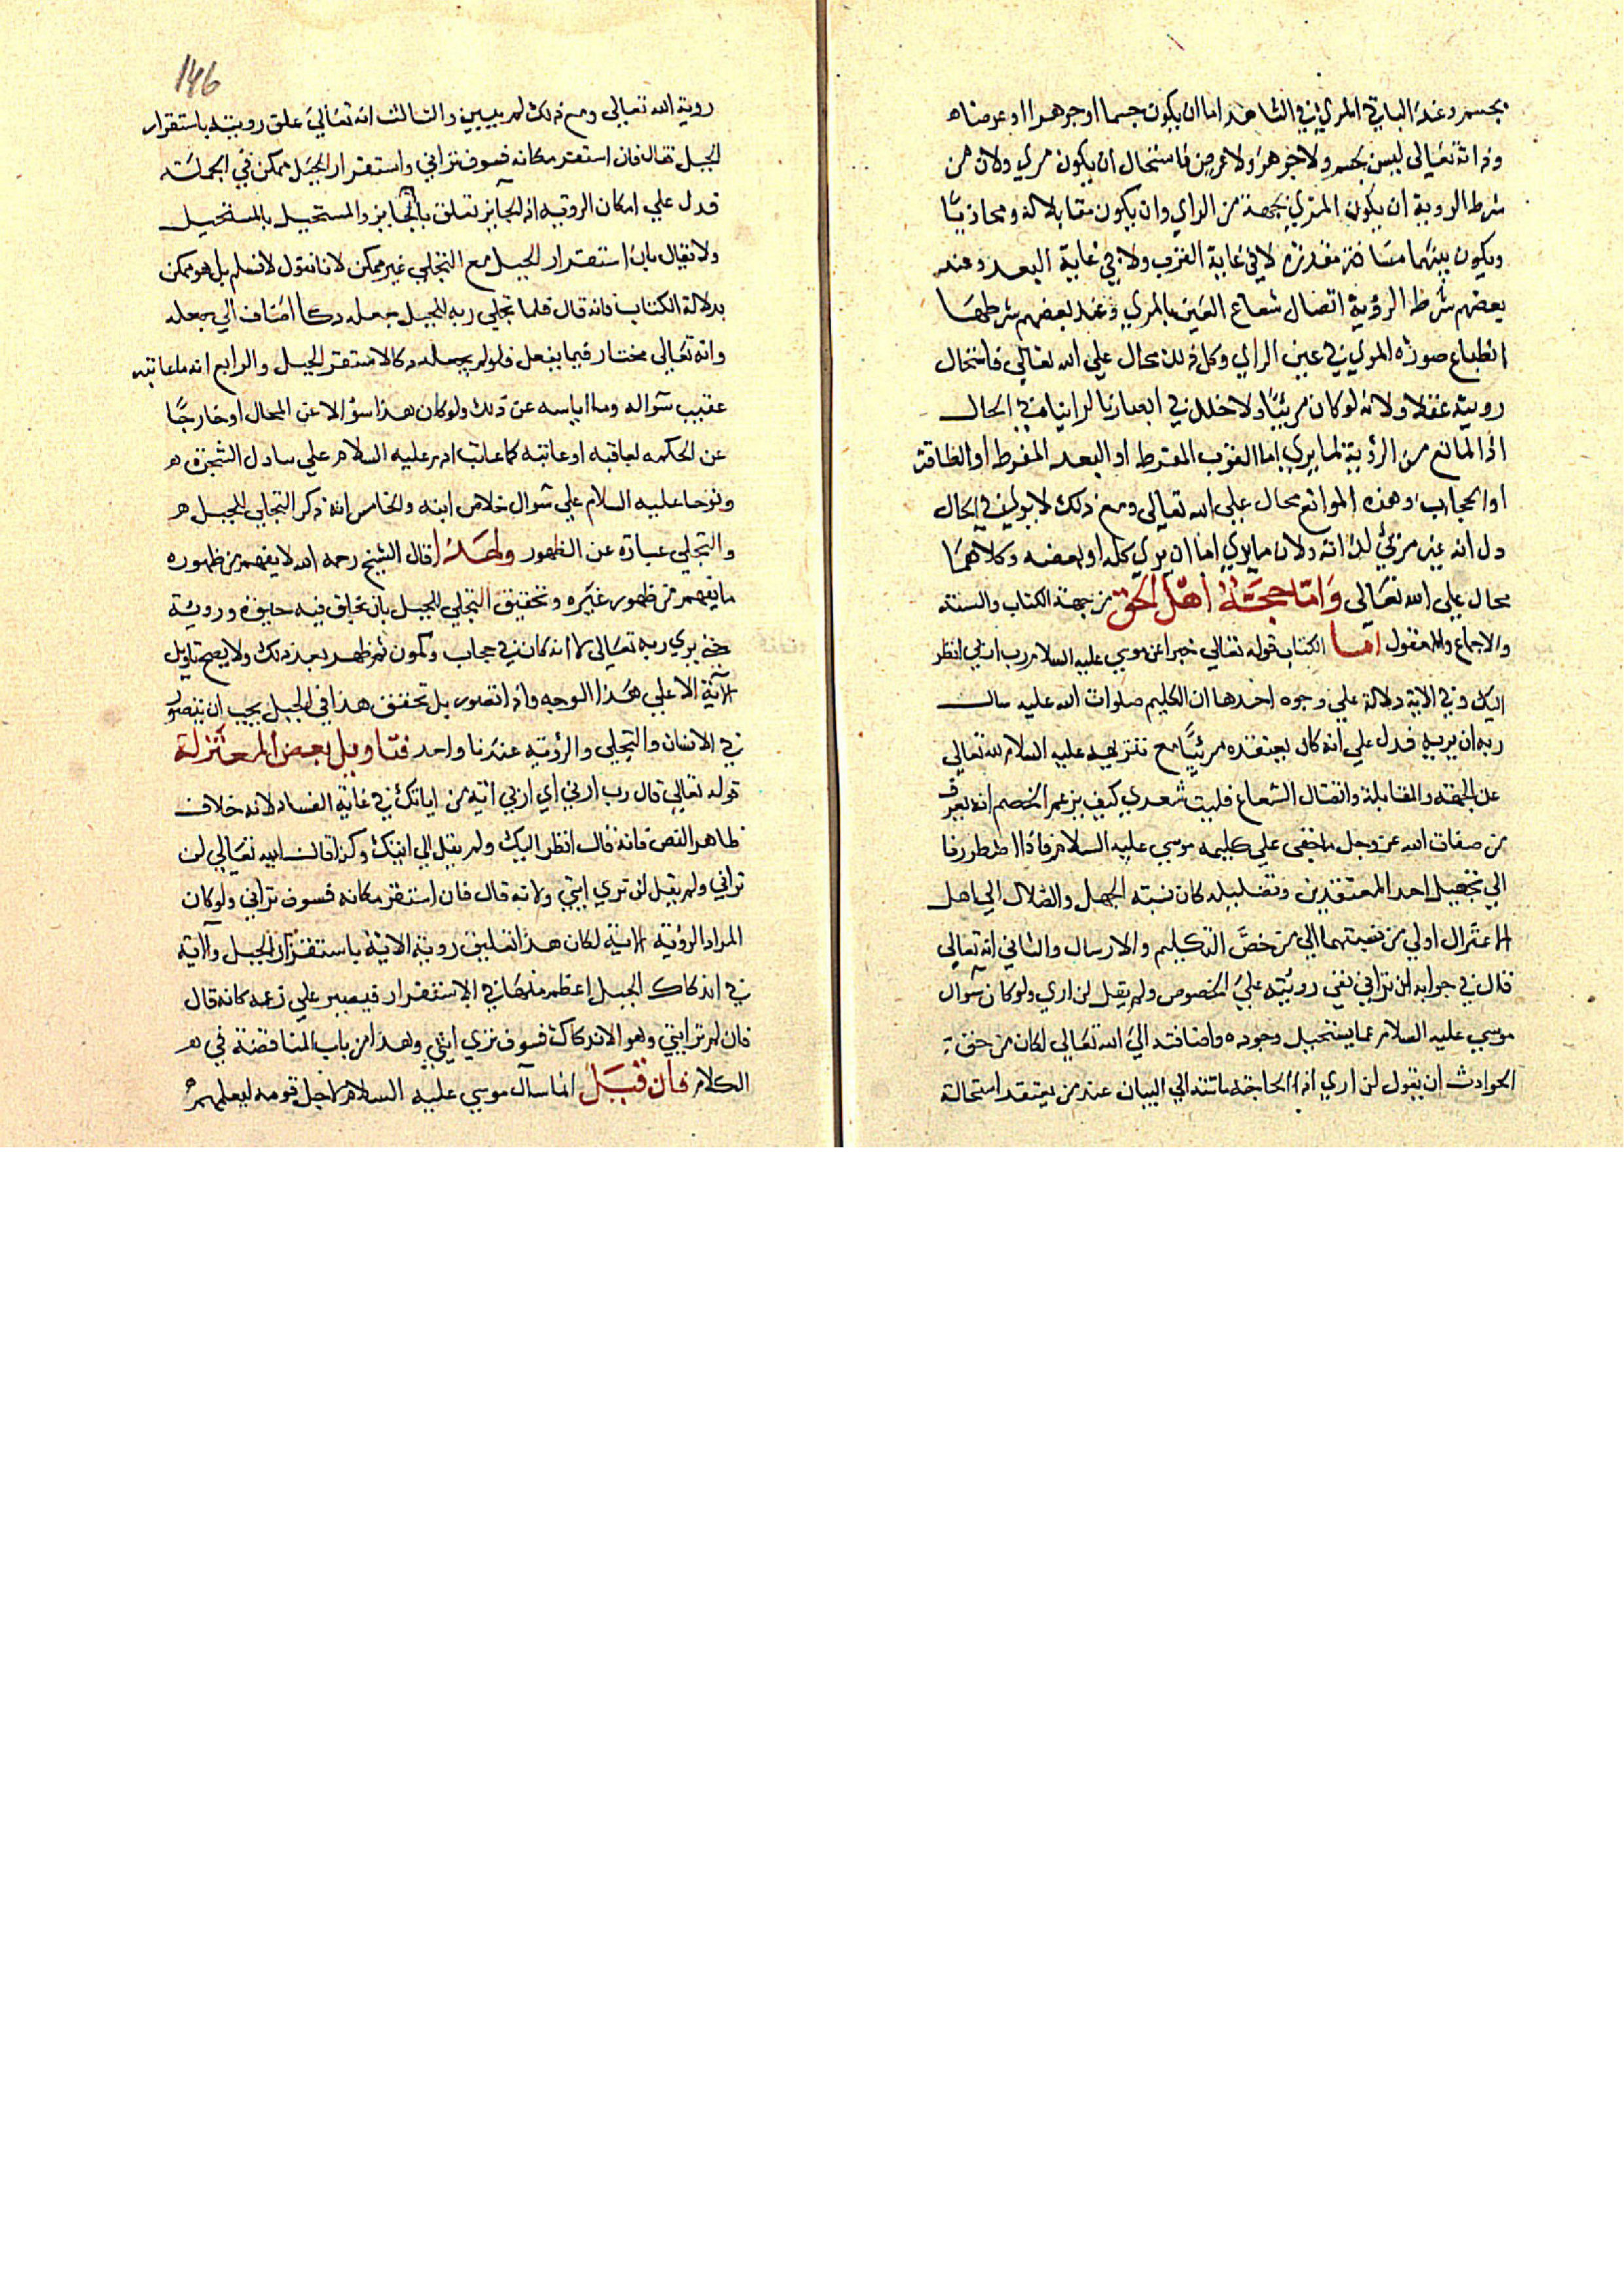 بجسم وعند الباقي المرئي في الشاهد اما ان يكون جسما او جوهرا او عرضا
وذاته تعالى ليس بجسم ولا جوهر ولا عرض فاستحال ان يكون مرى ولان من
شرط الروية ان يكون المرئي بجهة من الراي وان يكون مقابلا له ومحاذيا
ويكون بينهما مسافة مقدرة لا في غاية القرب ولا في غاية البعد وعند
بعضهم شرط الرؤية اتصال شعاع العين بالمرى وعند بعضهم شرطها
انطباع صورة المرى في عين الراى وكل ذلك محال على الله تعالى فاستحال
رويته عقلا ولانه لو كان مرئيا ولا خلل في ابصارنا لراينا في الحال
اذ المانع من الرؤية لما يرى اما القرب المفرط او البعد المفرط او اللطافة
او الحجاب وهذه الموانع محال على الله تعالى ومع ذلك لا يرى في الحال
دل انه غير مرئي لذاته ولان ما يرى اما ان يرى كله او بعضه وكلاهما
محال على الله تعالى واما حجة اهل الحق من جهة الكتاب والسنة
والاجماع والمعقول اما الكتاب قوله تعالى خبرا عن موسى عليه السلام رب ارنى انظر
اليك وفي الاية دلالة على وجوه احدها ان الكليم صلوات الله عليه سال
ربه ان يريه فدل على انه كان يعتقده مرئيا مع تنزيهه عليه السلام لله تعالى
عن الجهة والمقابلة واتصال الشعاع فليت شعري كيف يزعم الخصم انه يعرف
من صفات الله عز وجل ما خفى على كليمه موسى عليه السلام فاذا اضطررنا
الى تجهيل احد المعتقدين وتضليله كان نسبة الجهل والضلال الى اهل
الاعتزال اولى من نسبتهما الى من خص التكليم والارسال والثاني انه تعالى
قال في جوابه لن تراني نفى رويته على الخصوص ولم يقل لن ارى ولو كان سوال
موسى عليه السلام عما يستحيل وجوده واضافته الى الله تعالى لكان من حق
الحوادث ان يقول لن ارى اذ الحاجة ماسة الى البيان عند من يعتقد استحالة
146
روية الله تعالى ومع ذلك لم يبين والثالث انه تعالى علق رويته باستقرار
الجبل فقال فان استقر مكانه فسوف تراني واستقرار الجبل ممكن في الجملة
فدل على امكان الروية اذ الجايز تعلق بالجايز والمستحيل بالمستحيل
ولا يقال بان استقرار الجبل مع التجلى غير ممكن لانا نقول لا نسلم بل هو ممكن
بدلالة الكتاب فانه قال فلما تجلى ربه للجبل جعله دكا اضاف الى جعله
وانه تعالى مختار فيما يفعل فلو لم يجعله دكا لاستقر الجبل والرابع انه ما عاتبه
عقيب سواله وما اياسه عن ذلك ولو كان هذا سؤالا عن المحال او خارجا
عن الحكمه لعاقبه او عاتبه كما عاتب ادم عليه السلام على ساول الشجرة
ونوحا عليه السلام على سوال خلاص ابنه والخامس انه ذكر التجلي للجبل
والتجلي عبارة عن الظهور ولهذا قال الشيخ رحمه الله لا يفهم من ظهوره
ما يفهم من ظهور غيره وتحقيق التجلي للجبل بان خلق فيه حيوة وروية
حتى يرى ربه تعالى لا انه كان في حجاب وكمون ثم ظهر بعد ذلك ولا يصح تاويل
الاية الا على هذا الوجه واذا تصور بل تحقق هذا في الجبل يجب ان يتصور
في الانسان والتجلي والرؤية عندنا واحد فتاويل بعض المعتزلة
قوله تعالى قال رب ارني اي ارني اية من اياتك في غاية الفساد لانه خلاف
ظاهر النص فانه قال انظر اليك ولم يقل الى ايتك وكذا قال الله تعالى لن
تراني ولم يقل لن ترى ايتي ولانه قال فان استقر مكانه فسوف تراني ولو كان
المراد الرؤية الاية لكان هذا تعليق روية الاية باستقرار الجبل والاية
في اندكاك الجبل اعظم منها في الاستقرار فيصير على زعمه كانه قال
فان لم تر ايتي وهو الاندكاك فسوف ترى ايتي وهذا من باب المناقضة في
الكلام فان قيل انما سال موسى عليه السلام لاجل قومه ليعلمهم